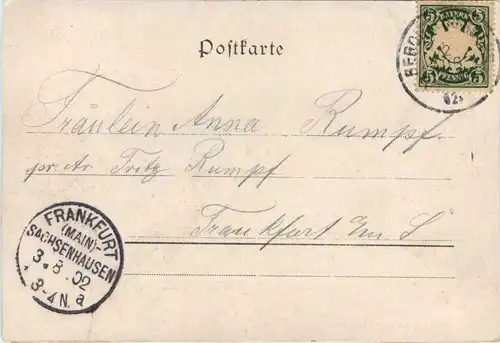 Postkarte
BAYERN
5 5
PFENNIG
Fräulein Anna Rumpf
pr Ar Fritz Rumpf
Frankfurt
FRANKFURT
(MAIN)-
SACHSENHAUSEN
3.8.02
3-4 N. a